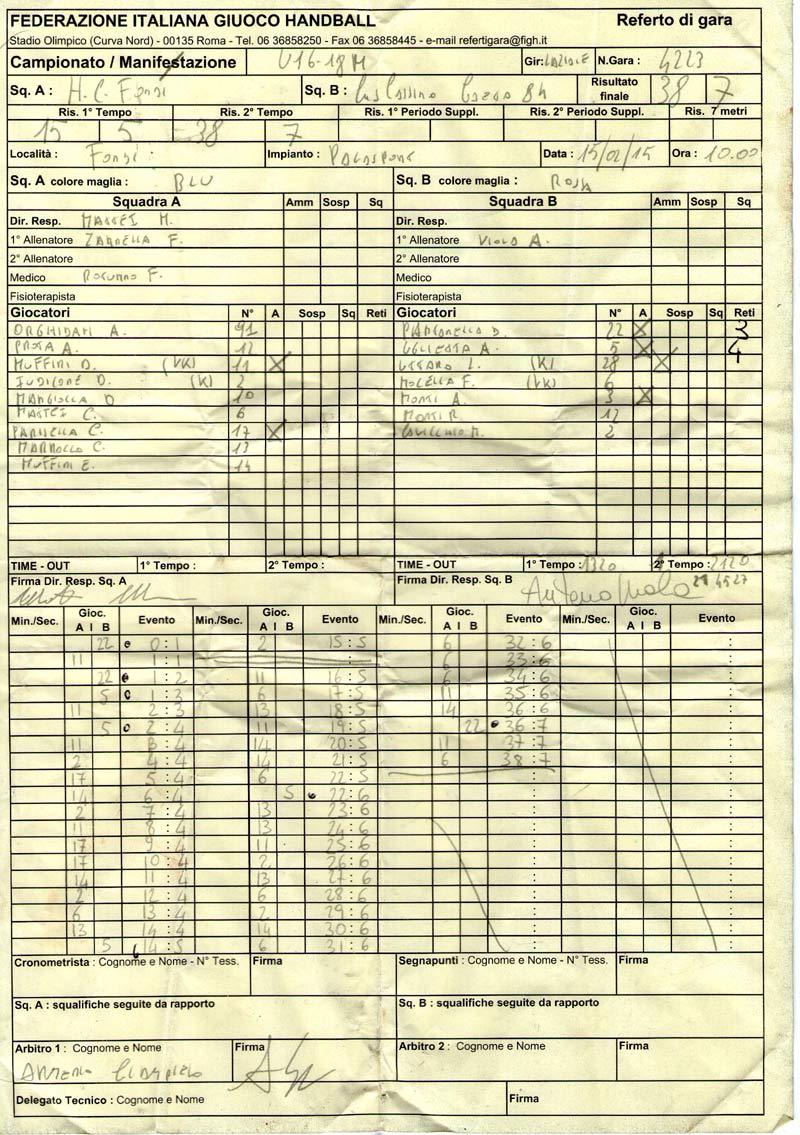 FEDERAZIONE ITALIANA GIUOCO HANDBALL Referto di gara
Stadio Olimpico (Curva Nord) - 00135 Roma - Tel. 06 36858250 - Fax 06 36858445 - e-mail refertigara@figh.it
Campionato / Manifestazione U16-18M Gir: LAZIALE N.Gara : 4223
Sq. A : H.C. Fondi Sq. B : Cus Cassino Gaeta 84 Risultato finale 38 7
Ris. 1° Tempo Ris. 2° Tempo Ris. 1° Periodo Suppl. Ris. 2° Periodo Suppl. Ris. 7 metri
15 5 38 7
Località : Fondi Impianto : Data : 15/02/15 Ora : 10.00
Sq. A colore maglia : BLU Sq. B colore maglia : ROSA
Squadra A Amm Sosp Sq Squadra B Amm Sosp Sq
Dir. Resp. M. Dir. Resp.
1° Allenatore ZANNELLA F. 1° Allenatore VIOLA A.
2° Allenatore 2° Allenatore
Medico F. Medico
Fisioterapista Fisioterapista
Giocatori N° A Sosp Sq Reti Giocatori N° A Sosp Sq Reti
ORGHIDAN A. 91 D. 22 X 3
A. 12 A. 5 X 4
MUFFINI D. (VK) 11 X L. (K) 28 X
IUDICONE D. (K) 2 F. (VK) 6
D 10 MONTI A. 3 X
C. 6 MONTI R. 12
PANNELLA C. 17 X M. 2
C. 13
MUFFINI E. 14
TIME - OUT 1° Tempo : 2° Tempo : TIME - OUT 1° Tempo : 1320 2° Tempo : 2120
Firma Dir. Resp. Sq. A Firma Dir. Resp. Sq. B Antonio Viola
Min./Sec. Gioc. A I B Evento Min./Sec. Gioc. A I B Evento Min./Sec. Gioc. A I B Evento Min./Sec. Gioc. A I B Evento
22 0:1 2 15:5 6 32:6 :
11 1:1 6 33:6 :
22 1:2 11 16:5 6 34:6 :
5 1:3 6 17:5 11 35:6 :
11 2:3 13 18:5 14 36:6 :
5 2:4 11 19:5 22 36:7 :
11 3:4 14 20:5 11 37:7 :
2 4:4 14 21:5 6 38:7 :
17 5:4 6 22:5 : :
14 6:4 5 22:6 : :
2 7:4 13 23:6 : :
11 8:4 13 24:6 : :
17 9:4 11 25:6 : :
17 10:4 2 26:6 : :
14 11:4 13 27:6 : :
2 12:4 6 28:6 : :
6 13:4 2 29:6 : :
13 14:4 14 30:6 : :
5 14:5 6 31:6 : :
Cronometrista : Cognome e Nome - N° Tess. Firma Segnapunti : Cognome e Nome - N° Tess. Firma
Sq. A : squalifiche seguite da rapporto Sq. B : squalifiche seguite da rapporto
Arbitro 1 : Cognome e Nome Firma Arbitro 2 : Cognome e Nome Firma
Delegato Tecnico : Cognome e Nome Firma